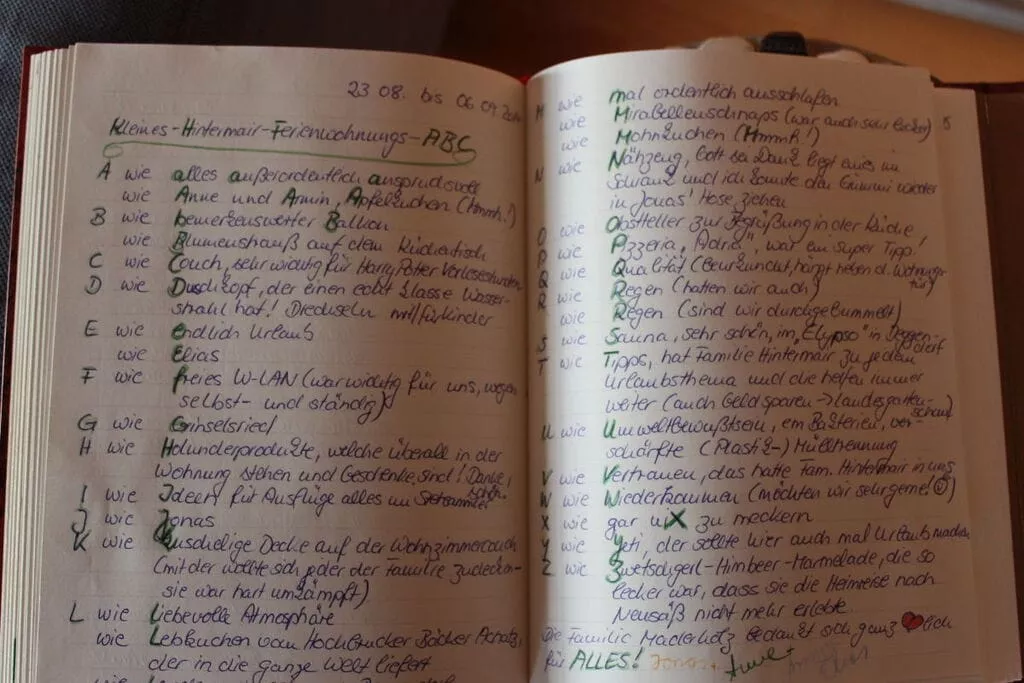 23 08. bis 06 09.
Kleines-Hintermair-Ferienwohnungs-ABC
A wie alles außerordentlich anspruchsvoll
wie Anne und Armin, Apfelkuchen (Hmmh!)
B wie bemerkenswerter Balkon
wie Blumenstrauß auf dem Küchentisch
C wie Couch, sehr wichtig für Harry Potter Vorlesestunden
D wie Duschkopf, der einen echt klasse Wasser-
strahl hat! Drechseln mit/für Kinder
E wie endlich Urlaub
wie Elias
F wie freies W-LAN (war wichtig für uns, wegen
selbst- und ständig)
G wie Grinselsried
H wie Holunderprodukte, welche überall in der
Wohnung stehen und Geschenke sind! Danke
schön
I wie Ideen für Ausflüge alles im
J wie Jonas
K wie kuschelige Decke auf der Wohnzimmercouch
(mit der wollte sich jeder der Familie zudecken-
sie war hart umkämpft)
L wie Liebevolle Atmosphäre
wie Lebkuchen vom Hochbrucker Bäcker
der in die ganze Welt liefert
M wie mal ordentlich ausschlafen
wie Mirabellenschnaps (war auch sehr lecker)
wie Mohnkuchen (Hmmh!)
N wie Nähzeug, Gott sei Dank liegt eines im
Schrank und ich konnte den Gummi wieder
in Jonas' Hose ziehen
O wie Obstteller zur Begrüßung in der Küche
P wie Pizzeria „Adria", war ein super Tipp!
Q wie Qualität (Beurkundet, hängt neben d. Wohnungs-
tür)
R wie Regen (hatten wir auch)
R wie Regen (sind wir durchgebummelt)
S wie Sauna, sehr schön, im „Elypso" in Deggen-
dorf
T wie Tipps, hat Familie Hintermair zu jedem
Urlaubsthema und die helfen immer
weiter (auch Geld sparen -> Landesgarten-
schau)
U wie Umweltbewußtsein, ein Bakterien, ver-
schärfte (Plastik-) Mülltrennung
V wie Vertrauen, das hatte Fam. Hintermair in uns
W wie Wiederkommen (möchten wir sehr gerne!☺)
X wie gar niX zu meckern
Y wie Yeti, der sollte hier auch mal Urlaub machen
Z wie Zwetschgerl-Himbeer-Marmelade, die so
lecker war, dass sie die Heimreise nach
Neusäß nicht mehr erlebte
Die Familie Maderholz bedankt sich ganz ♥lich
für ALLES! Jonas +